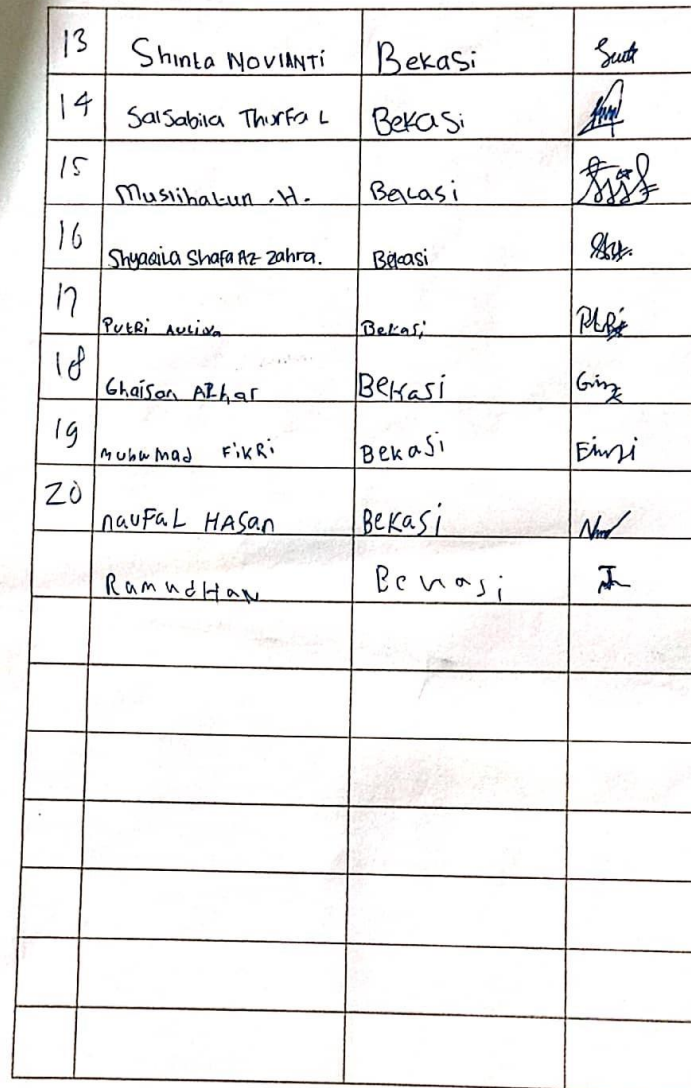 13 Shinta NOVIANTi Bekasi
14 Salsabila Thurfa L Bekasi
15 Muslihatun .H. Bekasi
16 Shyaqila Shafa Az-Zahra. Bekasi
17 Putri Auliya Bekasi
18 Ghaisan Azhar Bekasi
19 Muhammad FikRi Bekasi
20 naufal HASan Bekasi
RamadHan Bekasi